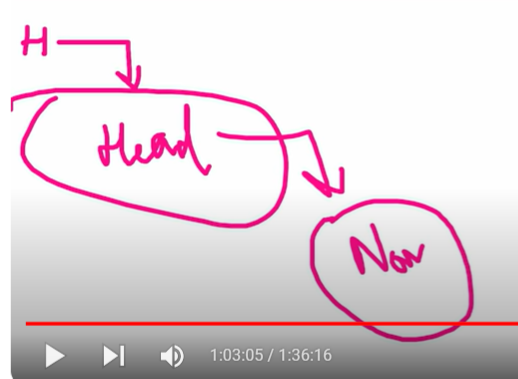 H
Head
Non
1:03:05 / 1:36:16